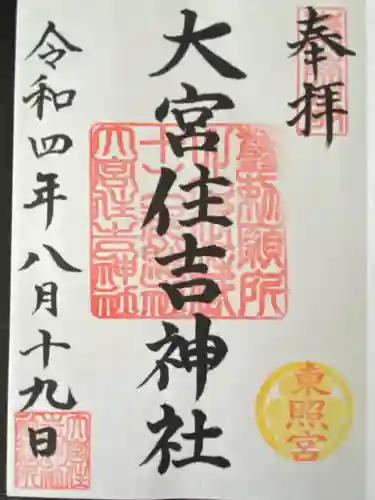 奉拝
東照宮
大宮住吉神社
勅願所
大宮住吉神社
令和四年八月十九日